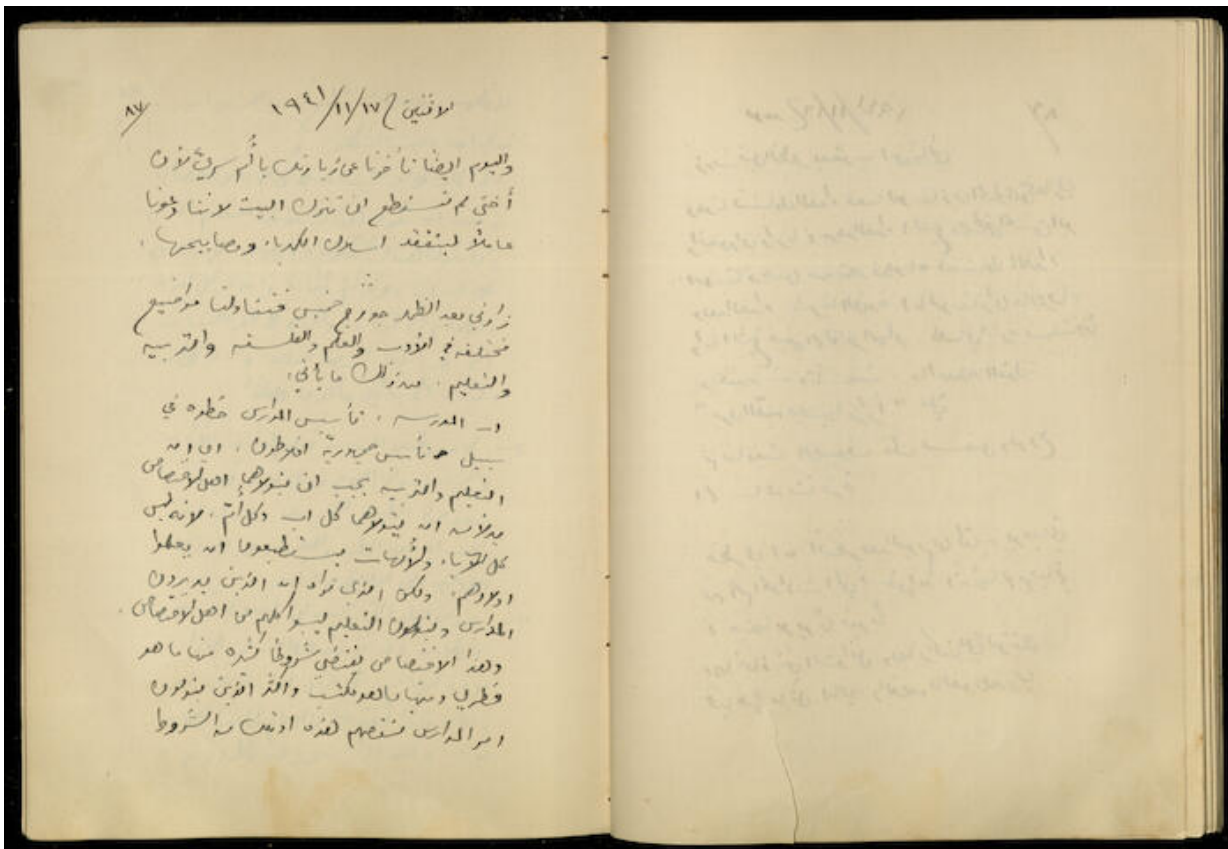 ٨٧ الاثنين في ١٧/١١/١٩٤١
واليوم ايضاً تأخرنا عن زيارتك يا أم سري لأن
أختي لم تستطع ان تترك البيت لاننا دعونا
عاملاً ليتفقد اسلاك الكهرباء ومصابيحها.
زارني بعد الظهر جورج خميس فتناولنا مواضيع
مختلفه في الأدب والعلم والفلسفه والتربيه
والتعليم. من ذلك ما يأتي.
ان المدرسه، تأسيس المدارس خطوه في
سبيل تأسيس جمهورية افلاطون، اي ان
التعليم والتربيه يجب ان يتولاهما اهل الاختصاص
بدلاً من ان يتولاهما كل اب وكل أم، لانه ليس
كل الآباء والأمهات يستطيعون ان يعلموا
اولادهم. ولكن الذي نراه ان الذين يديرون
المدارس ويتولون التعليم ليسوا كلهم من اهل الاختصاص.
وهذا الاختصاص يقتضي شروطاً كثيره منها ما هو
فطري ومنها ما هو مكتسب واكثر الذين يتولون
امر المدارس تنقصهم هذه الشروط